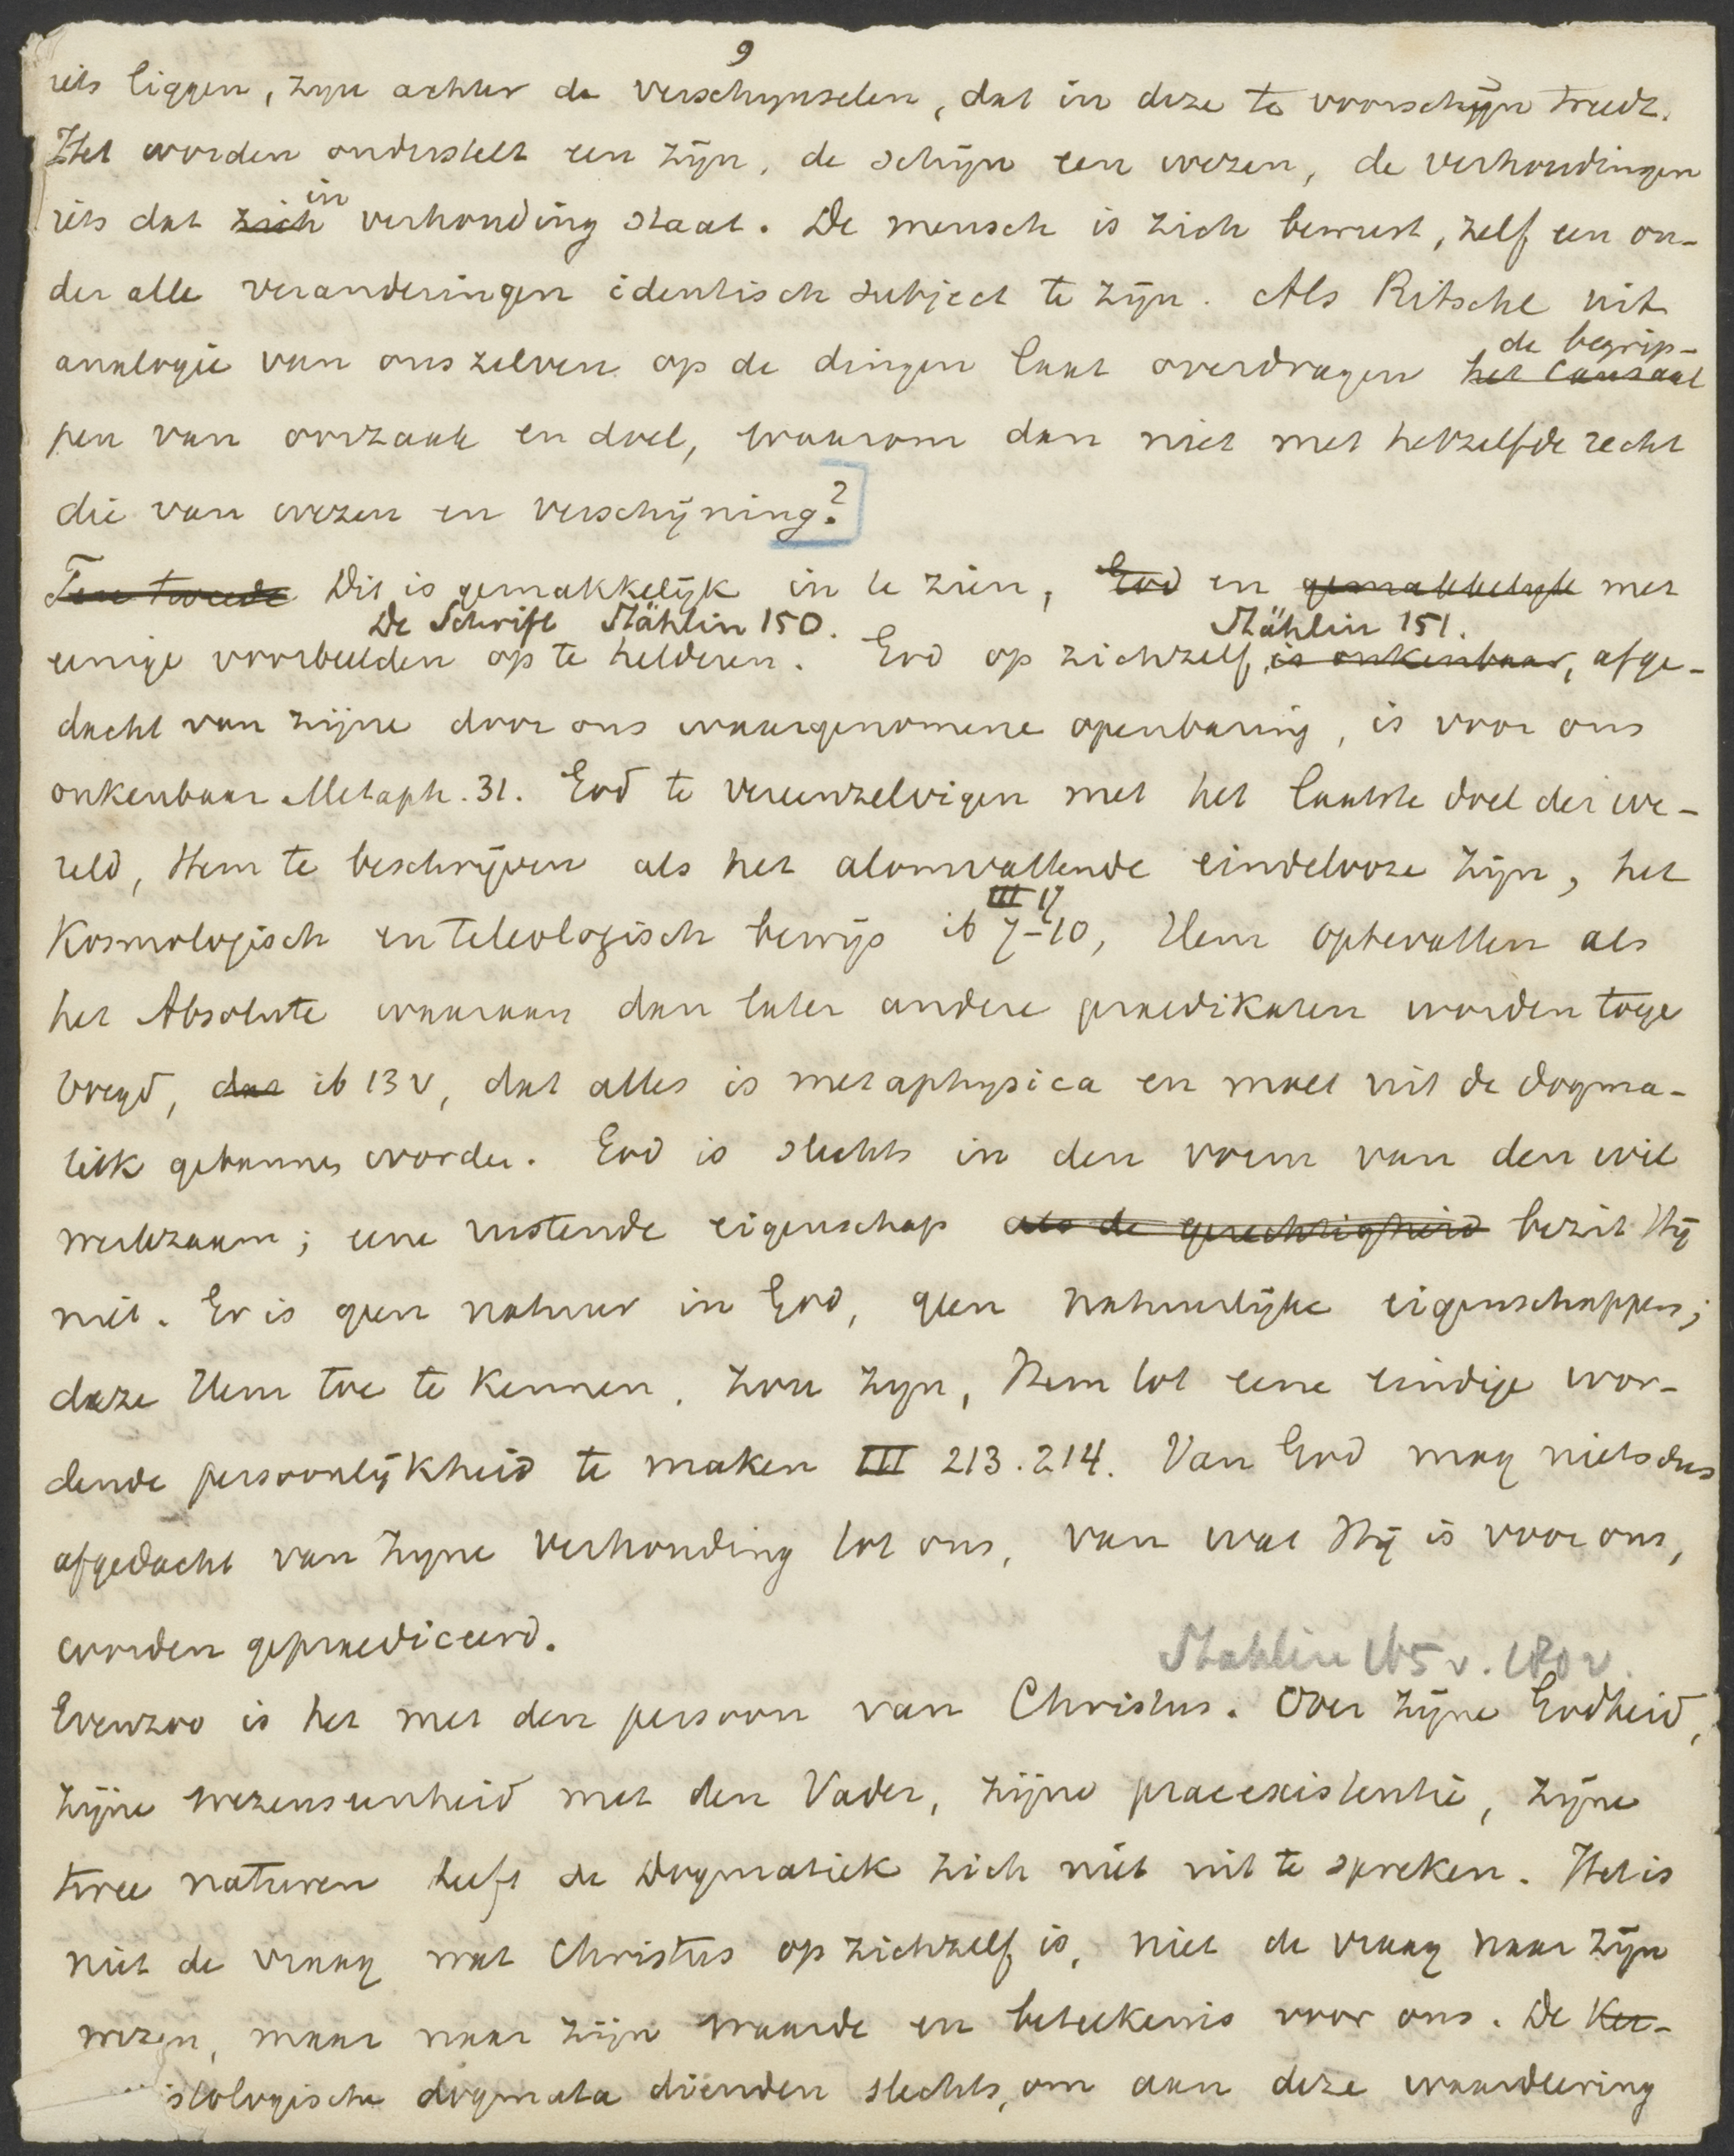 9
iets liggen, zijn achter de verschijnselen, dat in deze te voorschijn treedt.
Het worden onderstelt een zijn, de schijn een wezen, de verhoudingen
in
iets dat zich verhouding staat. De mensch is zich bewust, zelf een on-
der alle veranderingen identisch subject te zijn. Als Ritschl uit
de begrip-
analogie van ons zelven op de dingen laat overdragen het causaal
pen van oorzaak en doel, waarom dan niet met hetzelfde recht
die van wezen en verschijning?
Ten tweede Dit is gemakkelijk in te zien, God en gemakkelijk met
De Schrift Stählin 150. Stählin 151.
eenige voorbeelden op te helderen. God op zichzelf, is onkenbaar, afge-
dacht van zijne door ons waargenomene openbaring, is voor ons
onkenbaar Metaph. 31. God te vereenzelvigen met het laatste doel der we-
reld, Hem te beschrijven als het alomvattende eindelooze zijn, het
III 17
Kosmologisch en teleologisch bewijs ib 7-10, Hem optevatten als
het Absolute waaraan dan later andere praedikaten worden toege
voegd, dat ib 13 v, dat alles is metaphysica en moet uit de dogma-
tiek gebannen worden. God is slechts in den vorm van den wil
werkzaam; eene rustende eigenschap als de gerechtigheid bezit Hij
niet. Er is geen natuur in God, geen natuurlijke eigenschappen;
deze Hem toe te kennen, zou zijn, Hem tot eene eindige wor-
dende persoonlijkheid te maken III 213.214. Van God mag niets dus
afgedacht van zijne verhouding tot ons, van wat Hij is voor ons,
worden gepraediceerd.
Stahlin 165 v. 180 v.
Evenzoo is het met den persoon van Christus. Over zijne Godheid,
zijne wezenseenheid met den Vader, zijne praeexistentie, zijne
twee naturen heeft de Dogmatiek zich niet uit te spreken. Het is
niet de vraag wat Christus op zichzelf is, niet de vraag naar zijn
wezen, maar naar zijn waarde en beteekenis voor ons. De Ker-
istologische dogmata dienden slechts, om aan deze waardeering